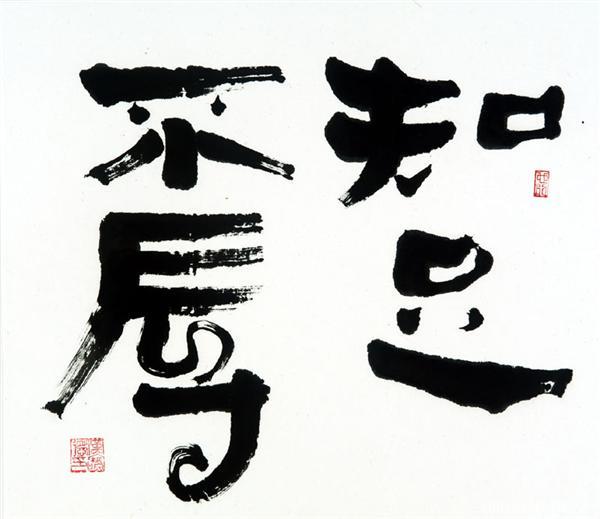 知足
不辱